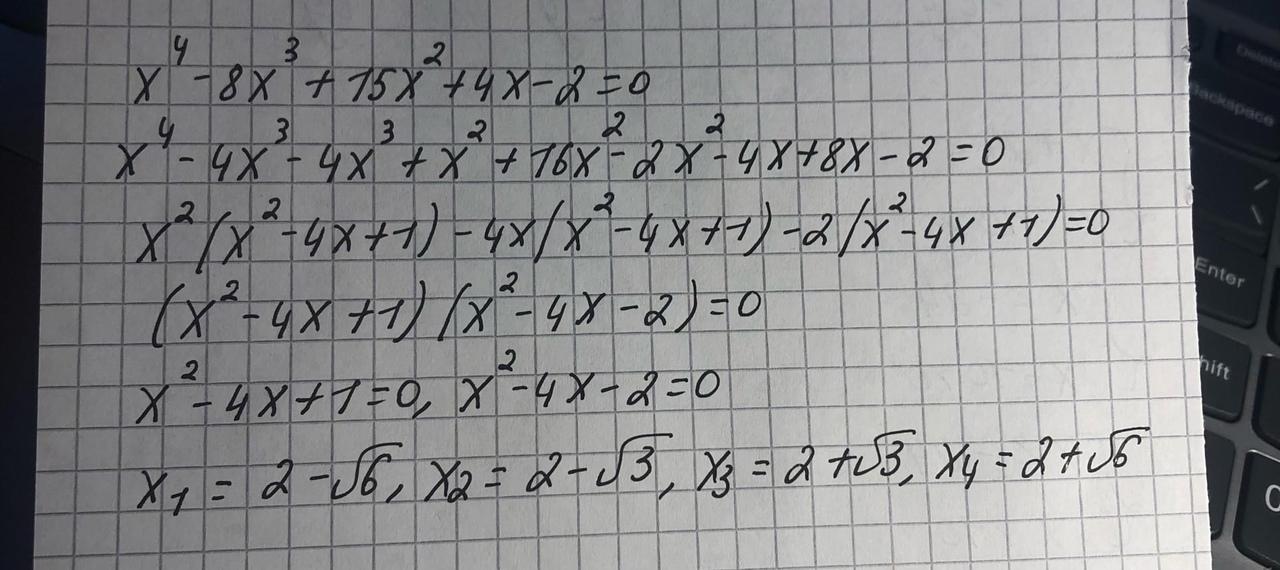 x⁴ - 8x³ + 15x² + 4x - 2 = 0
x⁴ - 4x³ - 4x³ + x² + 16x² - 2x² - 4x + 8x - 2 = 0
x²(x² - 4x + 1) - 4x(x² - 4x + 1) - 2(x² - 4x + 1) = 0
(x² - 4x + 1)(x² - 4x - 2) = 0
x² - 4x + 1 = 0, x² - 4x - 2 = 0
x₁ = 2 - √6, x₂ = 2 - √3, x₃ = 2 + √3, x₄ = 2 + √6
Delete
Backspace
Enter
hift